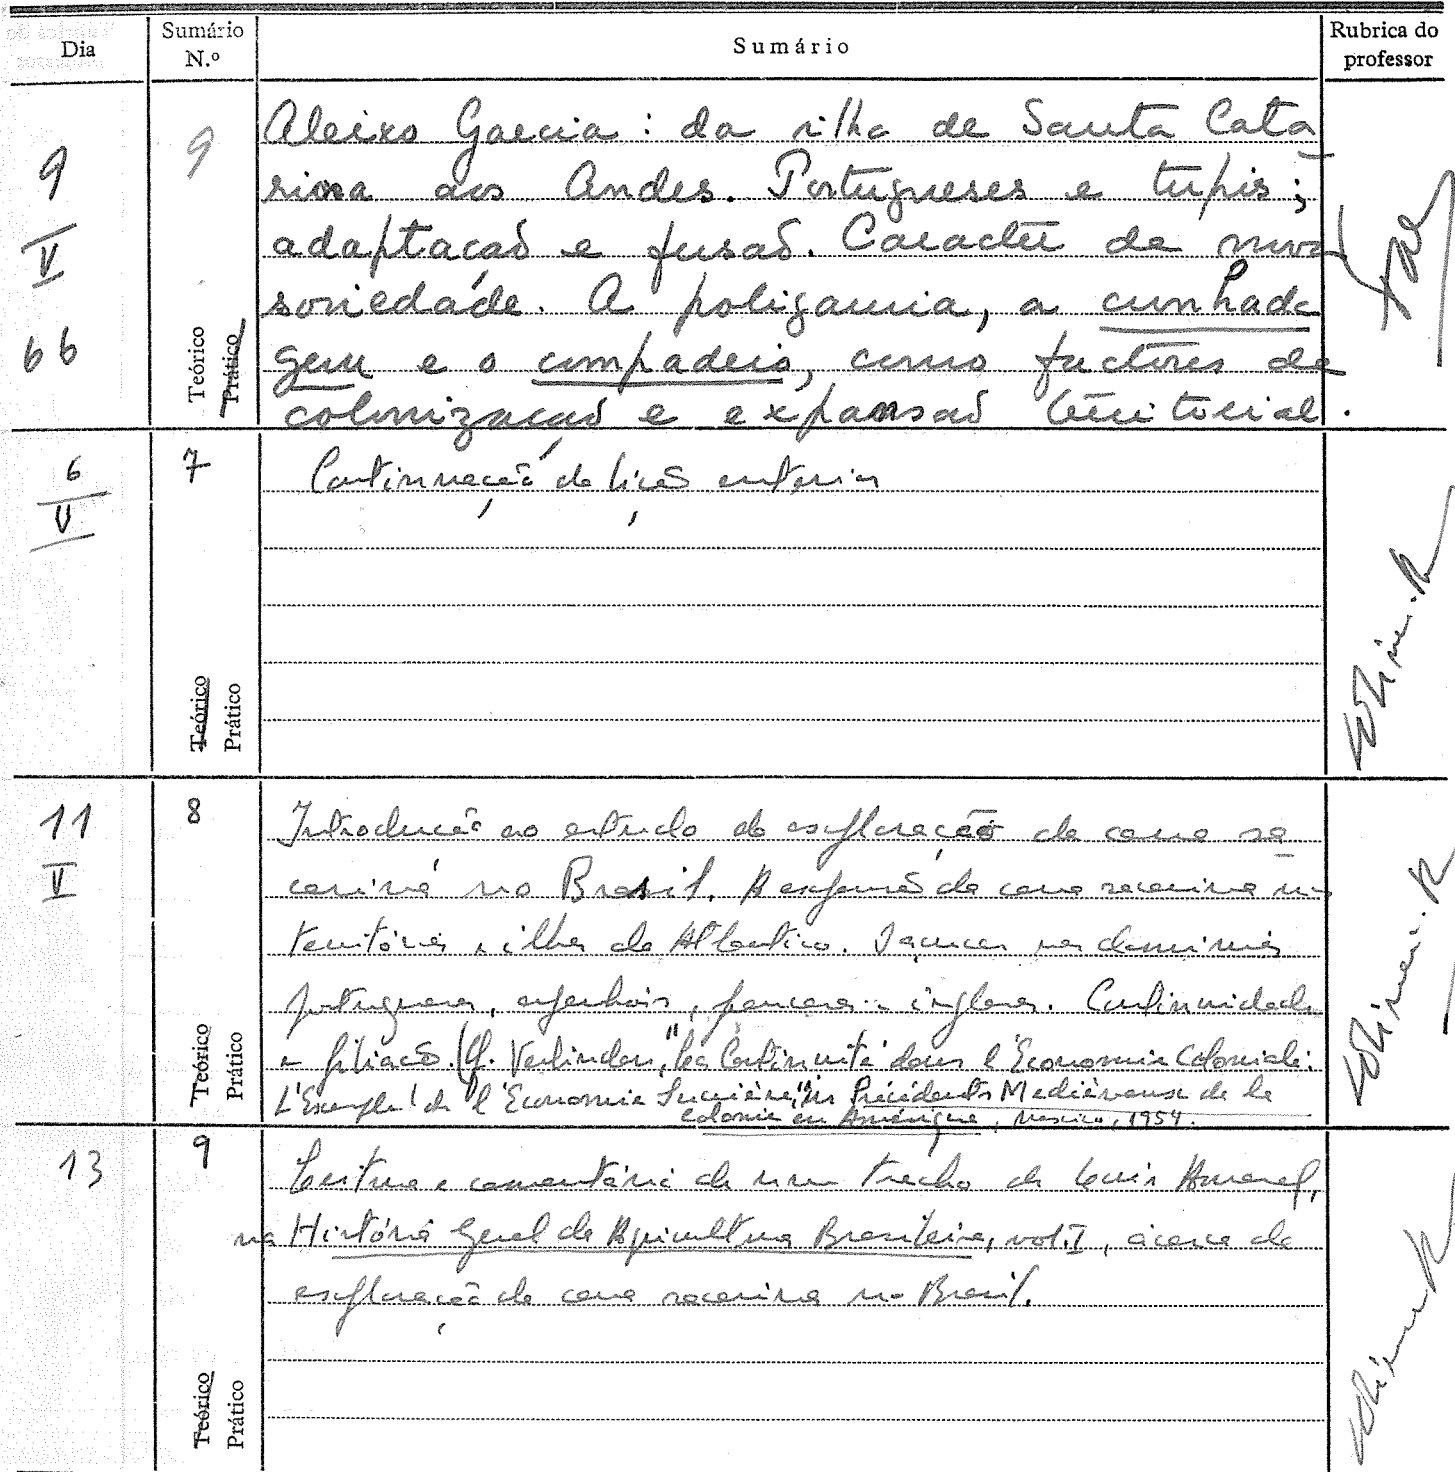 Dia
Sumário
N.º
Sumário
Rubrica do
professor
9
V
66
9
Teórico
Prático
Aleixo Garcia: da ilha de Santa Cata
rina aos Andes. Portugueses e tupis;
adaptação e fusão. Caracter da nova
sociedade. A poligamia, a cunhada
gem e o compadrio, como factores de
colonização e expansão territorial.
6
V
7
Teórico
Prático
Continuação da lição anterior
11
V
8
Teórico
Prático
Introdução ao estudo da exploração da cana sa
carina no Brasil. A expansão da cana sacarina nos
territórios e ilhas do Atlântico. nos domínios
portugueses, espanhóis, franceses e ingleses. Continuidade
e filiação. (Cf. Verlinden, "La Continuité dans l'Economie Coloniale:
L'Exemple de l'Économie Sucrière," in Précédents Médiévaux de la
Colonie en Amérique, Mexico, 1954.
13
9
Teórico
Prático
Leitura e comentário de um trecho de Luis Amaral,
na História Geral da Agricultura Brasileira, vol. I, acerca da
exploração da cana sacarina no Brasil.